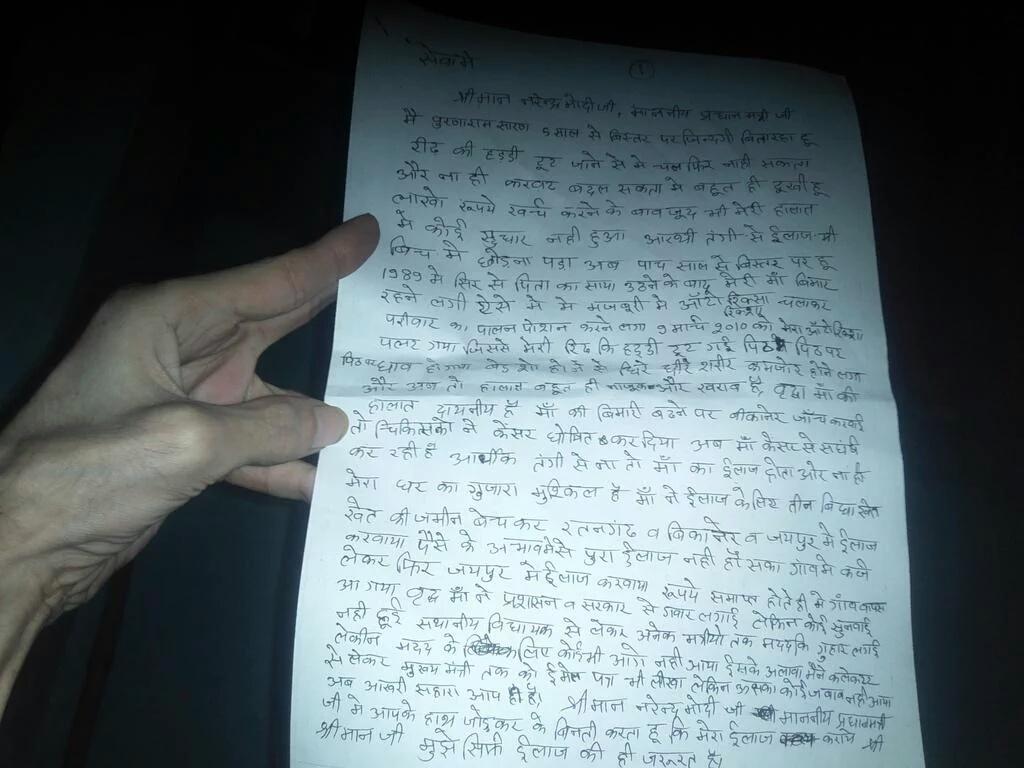 सेवामे
1
श्रीमान नरेन्द्र मोदी जी, माननीय प्रधान मंत्री जी
मै पुरणाराम सारण 5 साल से बिस्तर पर जिन्दगी बितारहा हू
रीढ की हड्डी टूट जाने से मे चल फिर नाही सकता
और ना ही करवट बदल सकता मे बहुत ही दुखी हू
लाखो रूपये खर्च करने के बावजूद भी मेरी हालात
में कोई सुधार नही हुआ आरथी तंगी से ईलाज भी
बिच मे छोड़ना पड़ा अब पाच साल से बिस्तर पर हू
1989 मे सिर से पिता का साया उठने के बाद मेरी माँ बिमार
रहने लगी ऐसे मे मे मजबूरी मे ऑटो रिक्सा चलाकर
रिक्शा
परीवार का पालन पोशन करने लगा 9 मार्च 2010 को मेरा ऑटो रिक्शा
पलट गया जिससे मेरी रिढ कि हड्डी टूट गई पिठ पर
पिठ पर घाव हो गया बेड शा होने से धिरे धीरे शरीर कमजोर होने लगा
और अब तो हालात बहूत ही नाजुक और खराब है वृद्ध माँ की
हालात दायनीय हैं माँ की बिमारी बढने पर बीकानेर जाँच करवाई
तो चिकित्सको ने केंसर घोषित कर दिया अब माँ केंसर से सघंर्ष
कर रही हैं आर्थीक तंगी से ना तो माँ का ईलाज होता ओर ना ही
मेरा घर का गुजारा मुश्किल है माँ ने ईलाज के लिए तीन बिघा खेत
खेत की जमीन बेच कर रतनगढ व बिकानेर व जयपुर मे ईलाज
करवाया पैसे के अभावमेसे पुरा ईलाज नही हों सका गांवमे कर्ज
लेकर फिर जयपुर मे ईलाज करवाया रूपये समाप्त होते ही मे गाँव वापस
आ गया वृद्ध माँ ने प्रशासन व सरकार से गुवार लगाई लेकिन कोई सुनवाई
नही हुई सथानीय विधायक से लेकर अनेक मंत्रीयो तक मददकि गुहार लगाई
लेकीन मदद के लिए कोई भी आगे नही आया ईसके अलावा मैने कलेकटर
से लेकर मुख्य मंत्री तक को ईमेल पत्र भी लीखा लेकिन उसका कोई जवाब नही आया
अब आखरी सहारा आप ही है। श्रीमान नरेन्द्र मोदी जी माननीय प्रधानमंत्री
जी मे आपके हाथ जोड़ कर के विनती करता हू कि मेरा ईलाज कराये श्री
श्रीमान जी मुझे सिर्फ ईलाज की ही जरूरत हैं।